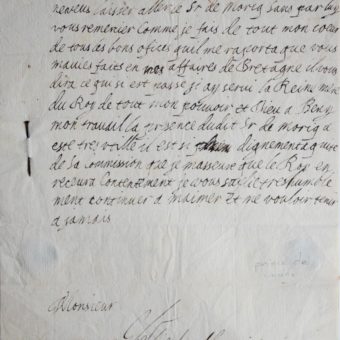 laisser aller le Sr de morig sans par luy
vous remersier Comme je fais de tout mon coeur
de tous les bons ofices quil me raporta que vous
mavies faits en mes affaires de Bretagne il vous
dira ce qui si est passe jay servi la Reine mere
du Roy de tout mon potuoir et Dieu a Beny
mon travail la presence dudit Sr de morig a
este tres utille il est si dignement aquite
de sa Commission que je masseure que le Roy en
recevra Contentement je vous suplie tres humble
ment continuer a maimer et me vouloir tenir
a jamais
Monsieur